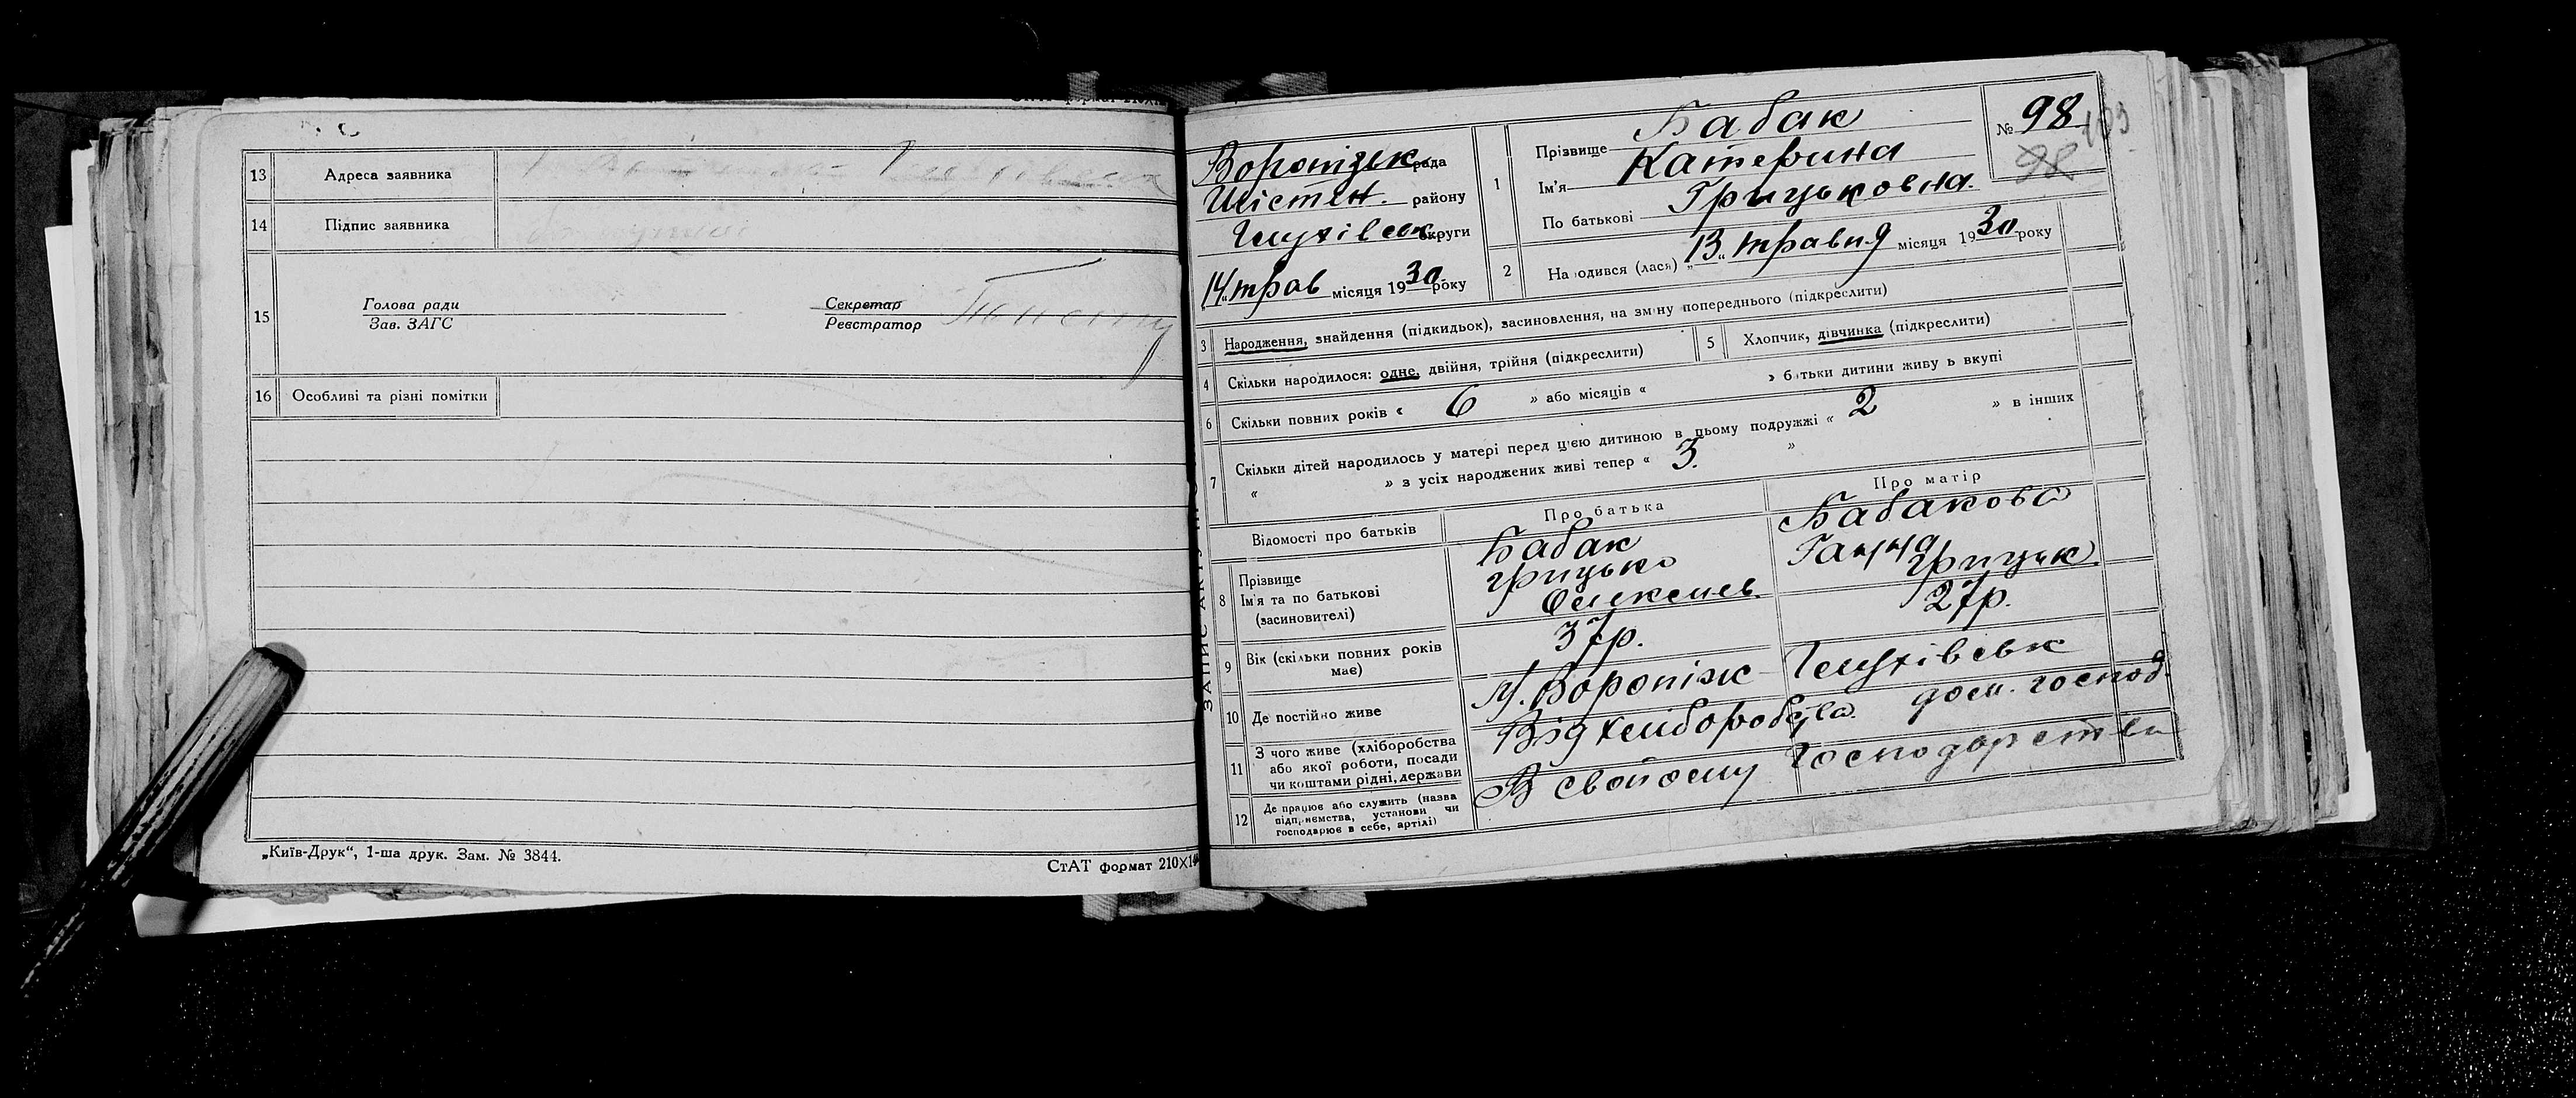 13 Адреса заявника
14 Підпис заявника
15 Голова ради
Зав. ЗАГС
Секретар
Реєстратор
16 Особливі та різні помітки
„Київ-Друк“, 1-ша друк. Зам. № 3844.
СтАТ формат 210X1
рада
Шістен. району
Глухівськ округи
14 „ трав місяця 1930 року
1 Прізвище Бабак
Ім'я Катерина
По батькові Грицьковна.
№ 98
98
2 На одився (лася) „ 13 “ травня місяця 1930 року
3 Народження, знайдення (підкидьок), засиновлення, на зміну попереднього (підкреслити)
4 Скільки народилося: одне, двійня, трійня (підкреслити)
5 Хлопчик, дівчинка (підкреслити)
6 Скільки повних років « 6 » або місяців « » батьки дитини живу ь вкупі
7 Скільки дітей народилось у матері перед цією дитиною в цьому подружжі « 2 » в інших
« » з усіх народжених живі тепер « 3. »
Відомості про батьків
Про батька
Про матір
8 Прізвище
Ім'я та по батькові
(засиновителі)
Бабак
Грицько
Олексієв.
Бабакова
Ганна
Грицьк.
9 Вік (скільки повних років
має)
37р.
27р.
10 Де постійно живе
М. Вороніж Глухівськ
11 З чого живе (хліборобства
або якої роботи, посади
чи коштами рідні, держави
Від хліборобства.
дом. господ.
12 Де працює або служить (назва
підприємства, установи чи
господарює в себе, артілі)
В свойому господарстві